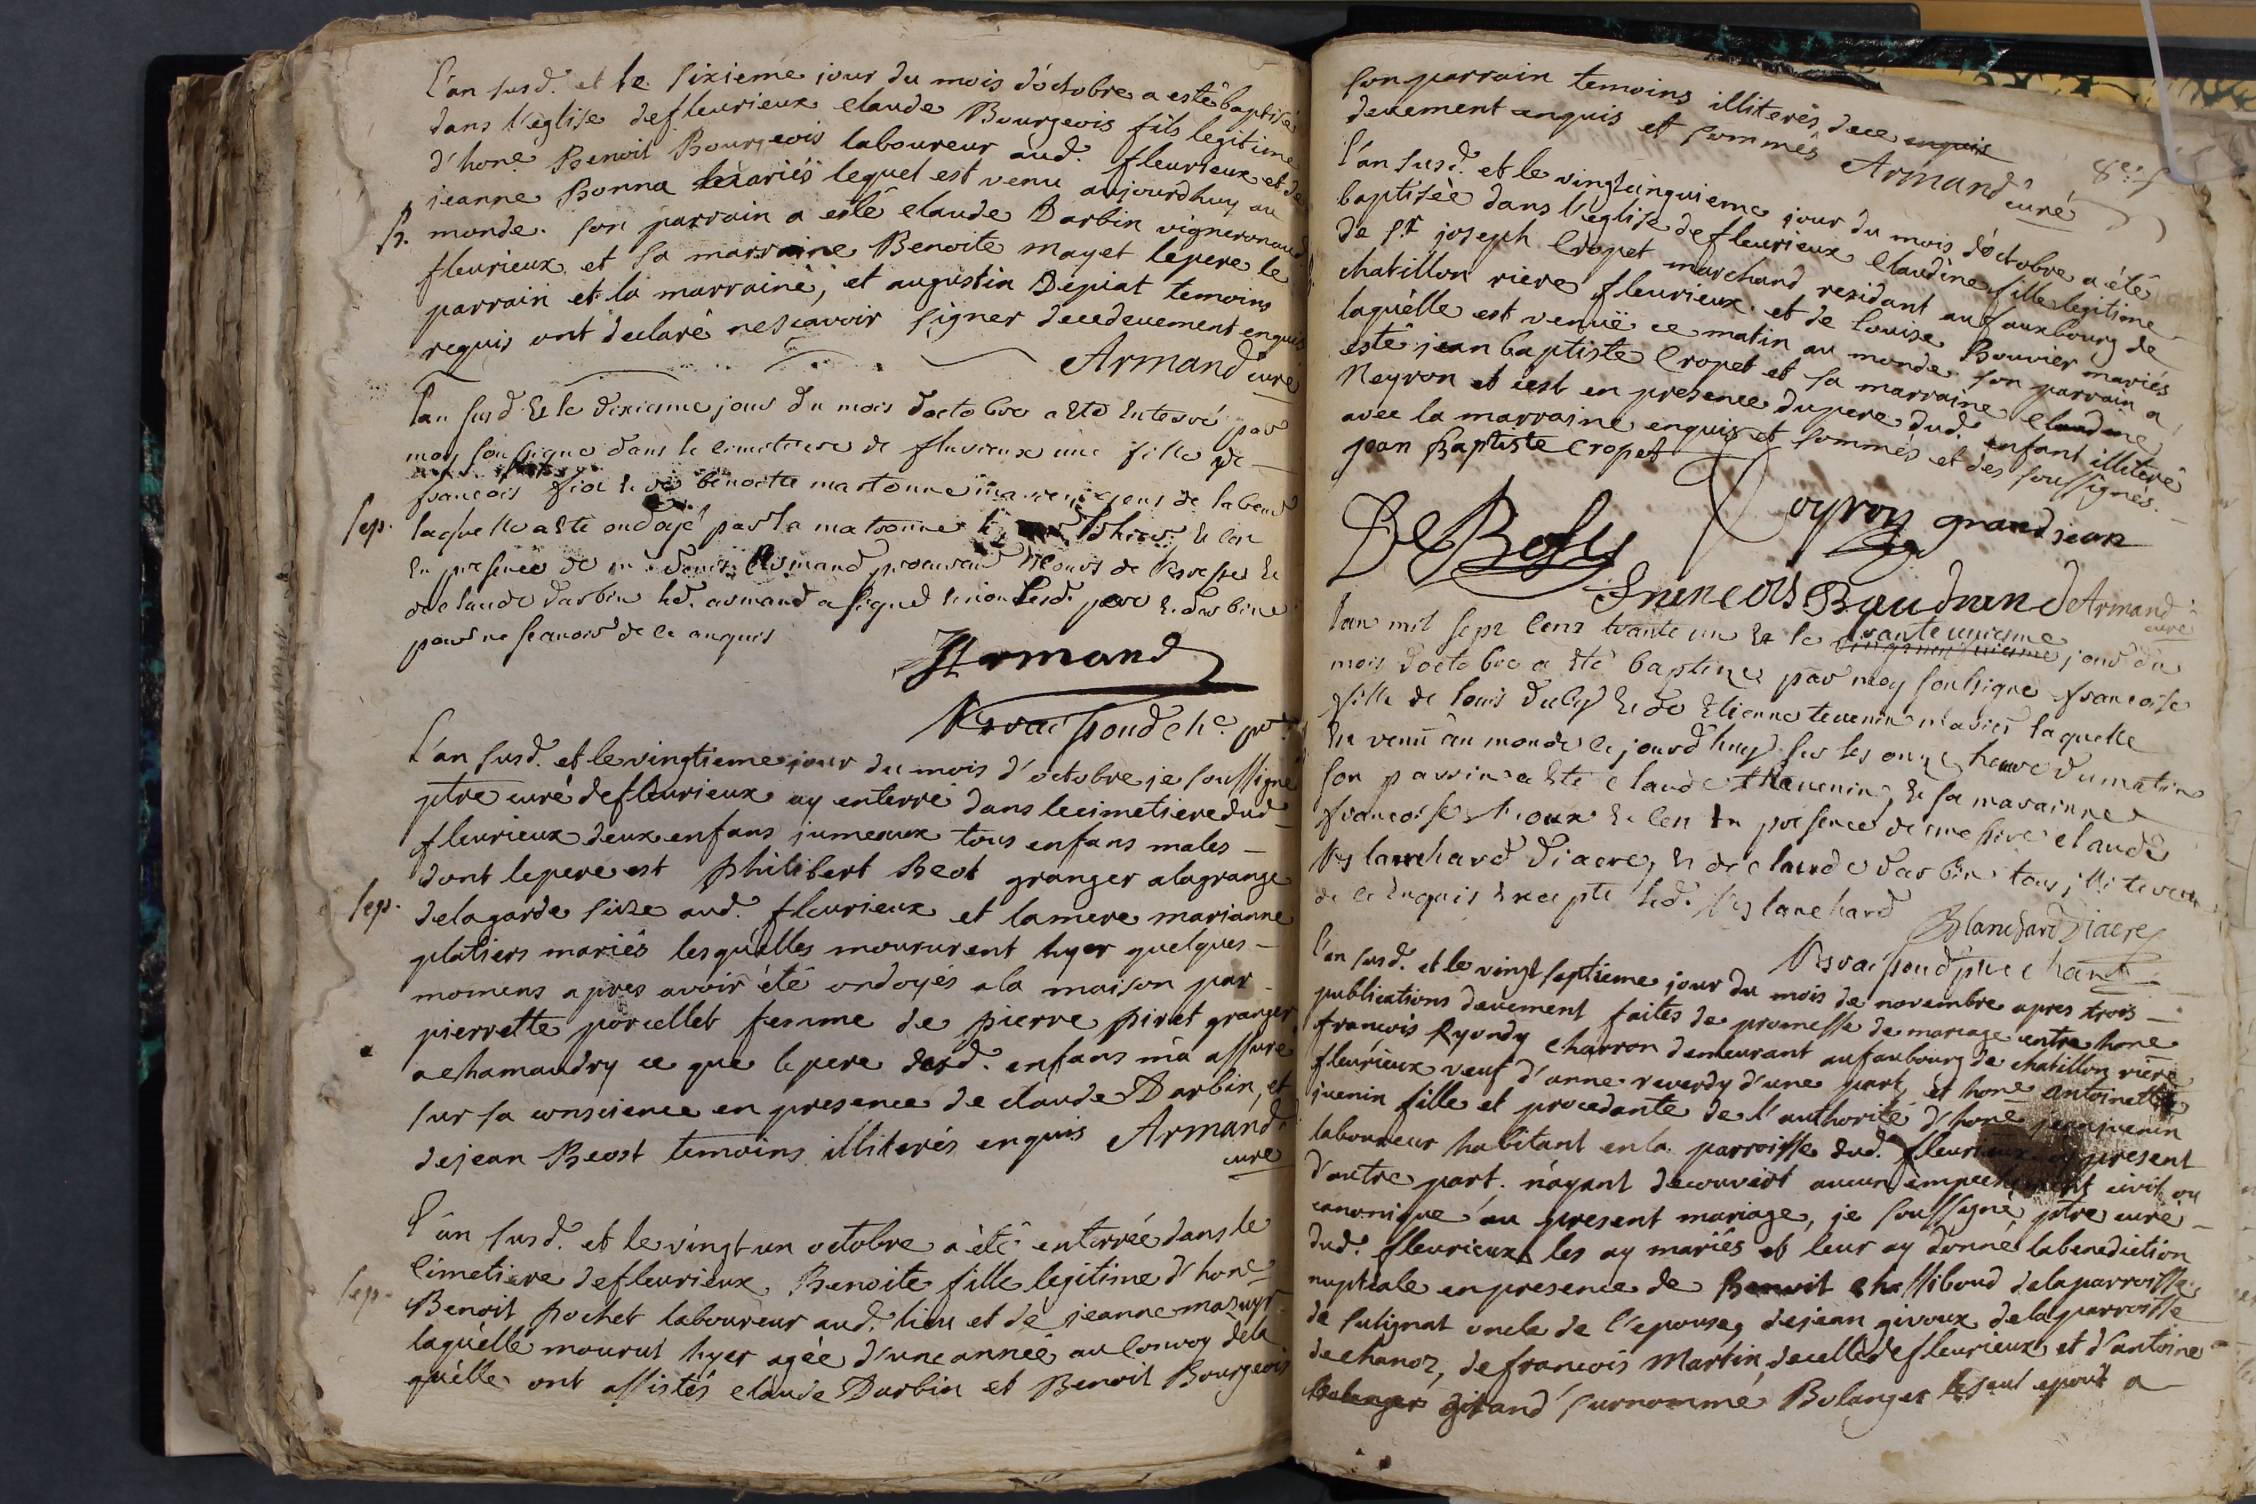 L'an susd. et le sixieme jour du mois d'octobre a esté baptisé
dans l'eglise de fleurieux claude Bourgeois fils legitime
d'hone. Benoit Bourgeois laboureur aud. fleurieux et de
jeanne Bonna mariés lequel est venu aujourdhuy au
B. monde. son parrain a esté claude Darbin vigneron aud.
fleurieux et sa marraine Benoite mayet le pere le
parrain et la marraine, et augustin Depiat temoins
requis ont declaré ne scavoir signer de ce deuement enquis
Armand curé
Lan susd. & le dixieme jour du mois doctobre a été enterré par
moy soussigne dans le cimetiere de flurieux une fille de
francois & de benoitte martonne gens de labeur
sep. laquelle a été ondoyé par la matronne & cen
en presence de Armand &
de claude darbin led. armand a signé non led. pere & darbin
pour ne scavoir de ce enquis
Armand
L'an susd. et le vingtieme jour du mois d'octobre je soussigné
ptre curé de fleurieux ay enterré dans le cimetiere dud.
fleurieux deux enfans jumeaux tous enfans males
dont le pere est philibert Beot granger a la grange
sep. de la garde size aud. fleurieux et la mere marianne
platiers mariés lesquelles moururent hyer quelques
momens apres avoir été ondoyés a la maison par
pierrette porcellet femme de pierre piret granger
a chamandry ce que le pere desd. enfans m'a assuré
sur sa conscience en presence de claude Darbin, et
de jean Beost temoins illiterés enquis Armand
curé
L'an susd. et le vingt un octobre a été enterrée dans le
cimetiere de fleurieux Benoite fille legitime d'hone
sep. Benoit pochet laboureur aud. lieu et de jeanne mazuyr
laquelle mourut hyer agée d'une année au convoy de la
quelle ont assistés claude Darbin et Benoit Bourgeois
son parrain temoins illiterés de ce enquis
deuement enquis et sommés Armand curé
L'an susd. et le vingtcinquieme jour du mois d'octobre a été
baptisée dans l'église de fleurieux Claudine fille legitime
de sr. joseph Cropet marchand residant au fauxbourg de
chatillon riere fleurieux et de louise Bouvier mariés
laquelle est venuë ce matin au monde son parrain a
esté jean baptiste Cropet et sa marraine claudine
Neyron et cest en presence du pere dud. enfant illiteré
avec la marraine enquis et sommés et des soussignés.
jean Baptiste Cropet
grand jean
francois Baudrand Armand
curé
Lan mil sept cens trante un & le trante unieme jour du
mois doctobre a été baptizée par moy soussigne francoise
fille de louis & de Etienne tevenin mariés laquelle
est venü au monde ce jourdhuy sur les onze heure du matin
son parrin a été claude thevenin, & sa marainne
francoise & cen en presence de messire claude
Blanchard diacre, & de claude darbin tous illiteres
de ce enquis excepté led. Blanchard
Blanchard diacre
L'an susd. et le vingt septieme jour du mois de novembre apres trois
publications deuement faites de promesse de mariage entre hone
françois Ryondy charron demeurant au faubourg de chatillon riere
fleurieux veuf d'anne reverdy d'une part, et hone antoinette
juenin fille et procedante de l'authorité d'hone jean juenin
laboureur habitant en la parroisse dud. fleurieux cy present
d'autre part. n'ayant decouvert aucun empechement civil ou
canonique au present mariage, je soussigné ptre curé
dud. fleurieux les ay mariés et leur ay donné la benediction
nuptiale en presence de Benoit chassiboud de la parroisse
de sulignat oncle de l'epouse, de jean givoux de la parroisse
de chanoz, de francois Martin de celle de fleurieux et d'antoine
girand surnommé Bolanger le seul epoux a